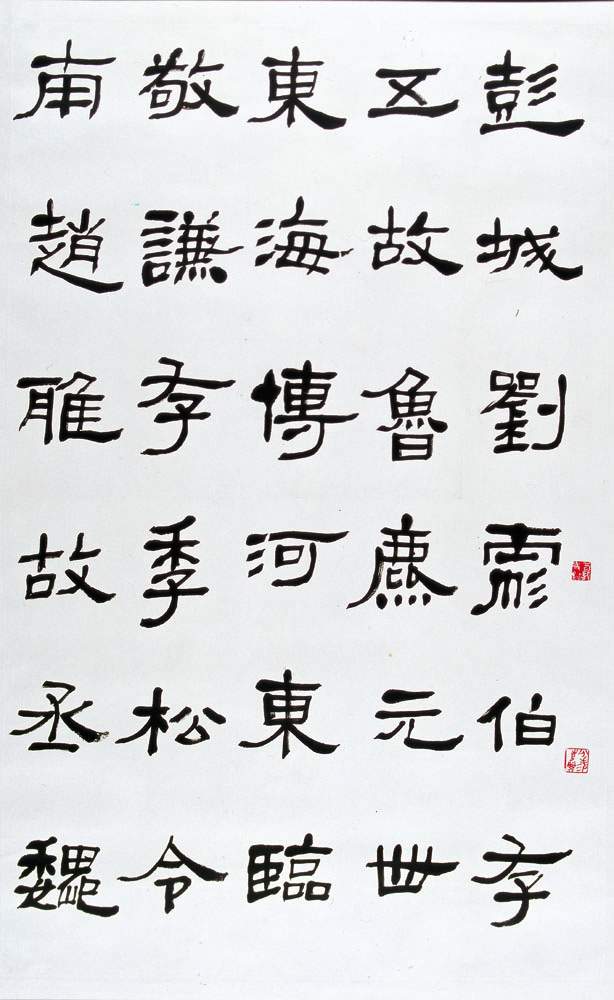 彭城劉彪伯存
五故魯麃元世
東海傅河東臨
敬謙字季松令
南趙雅故丞魏